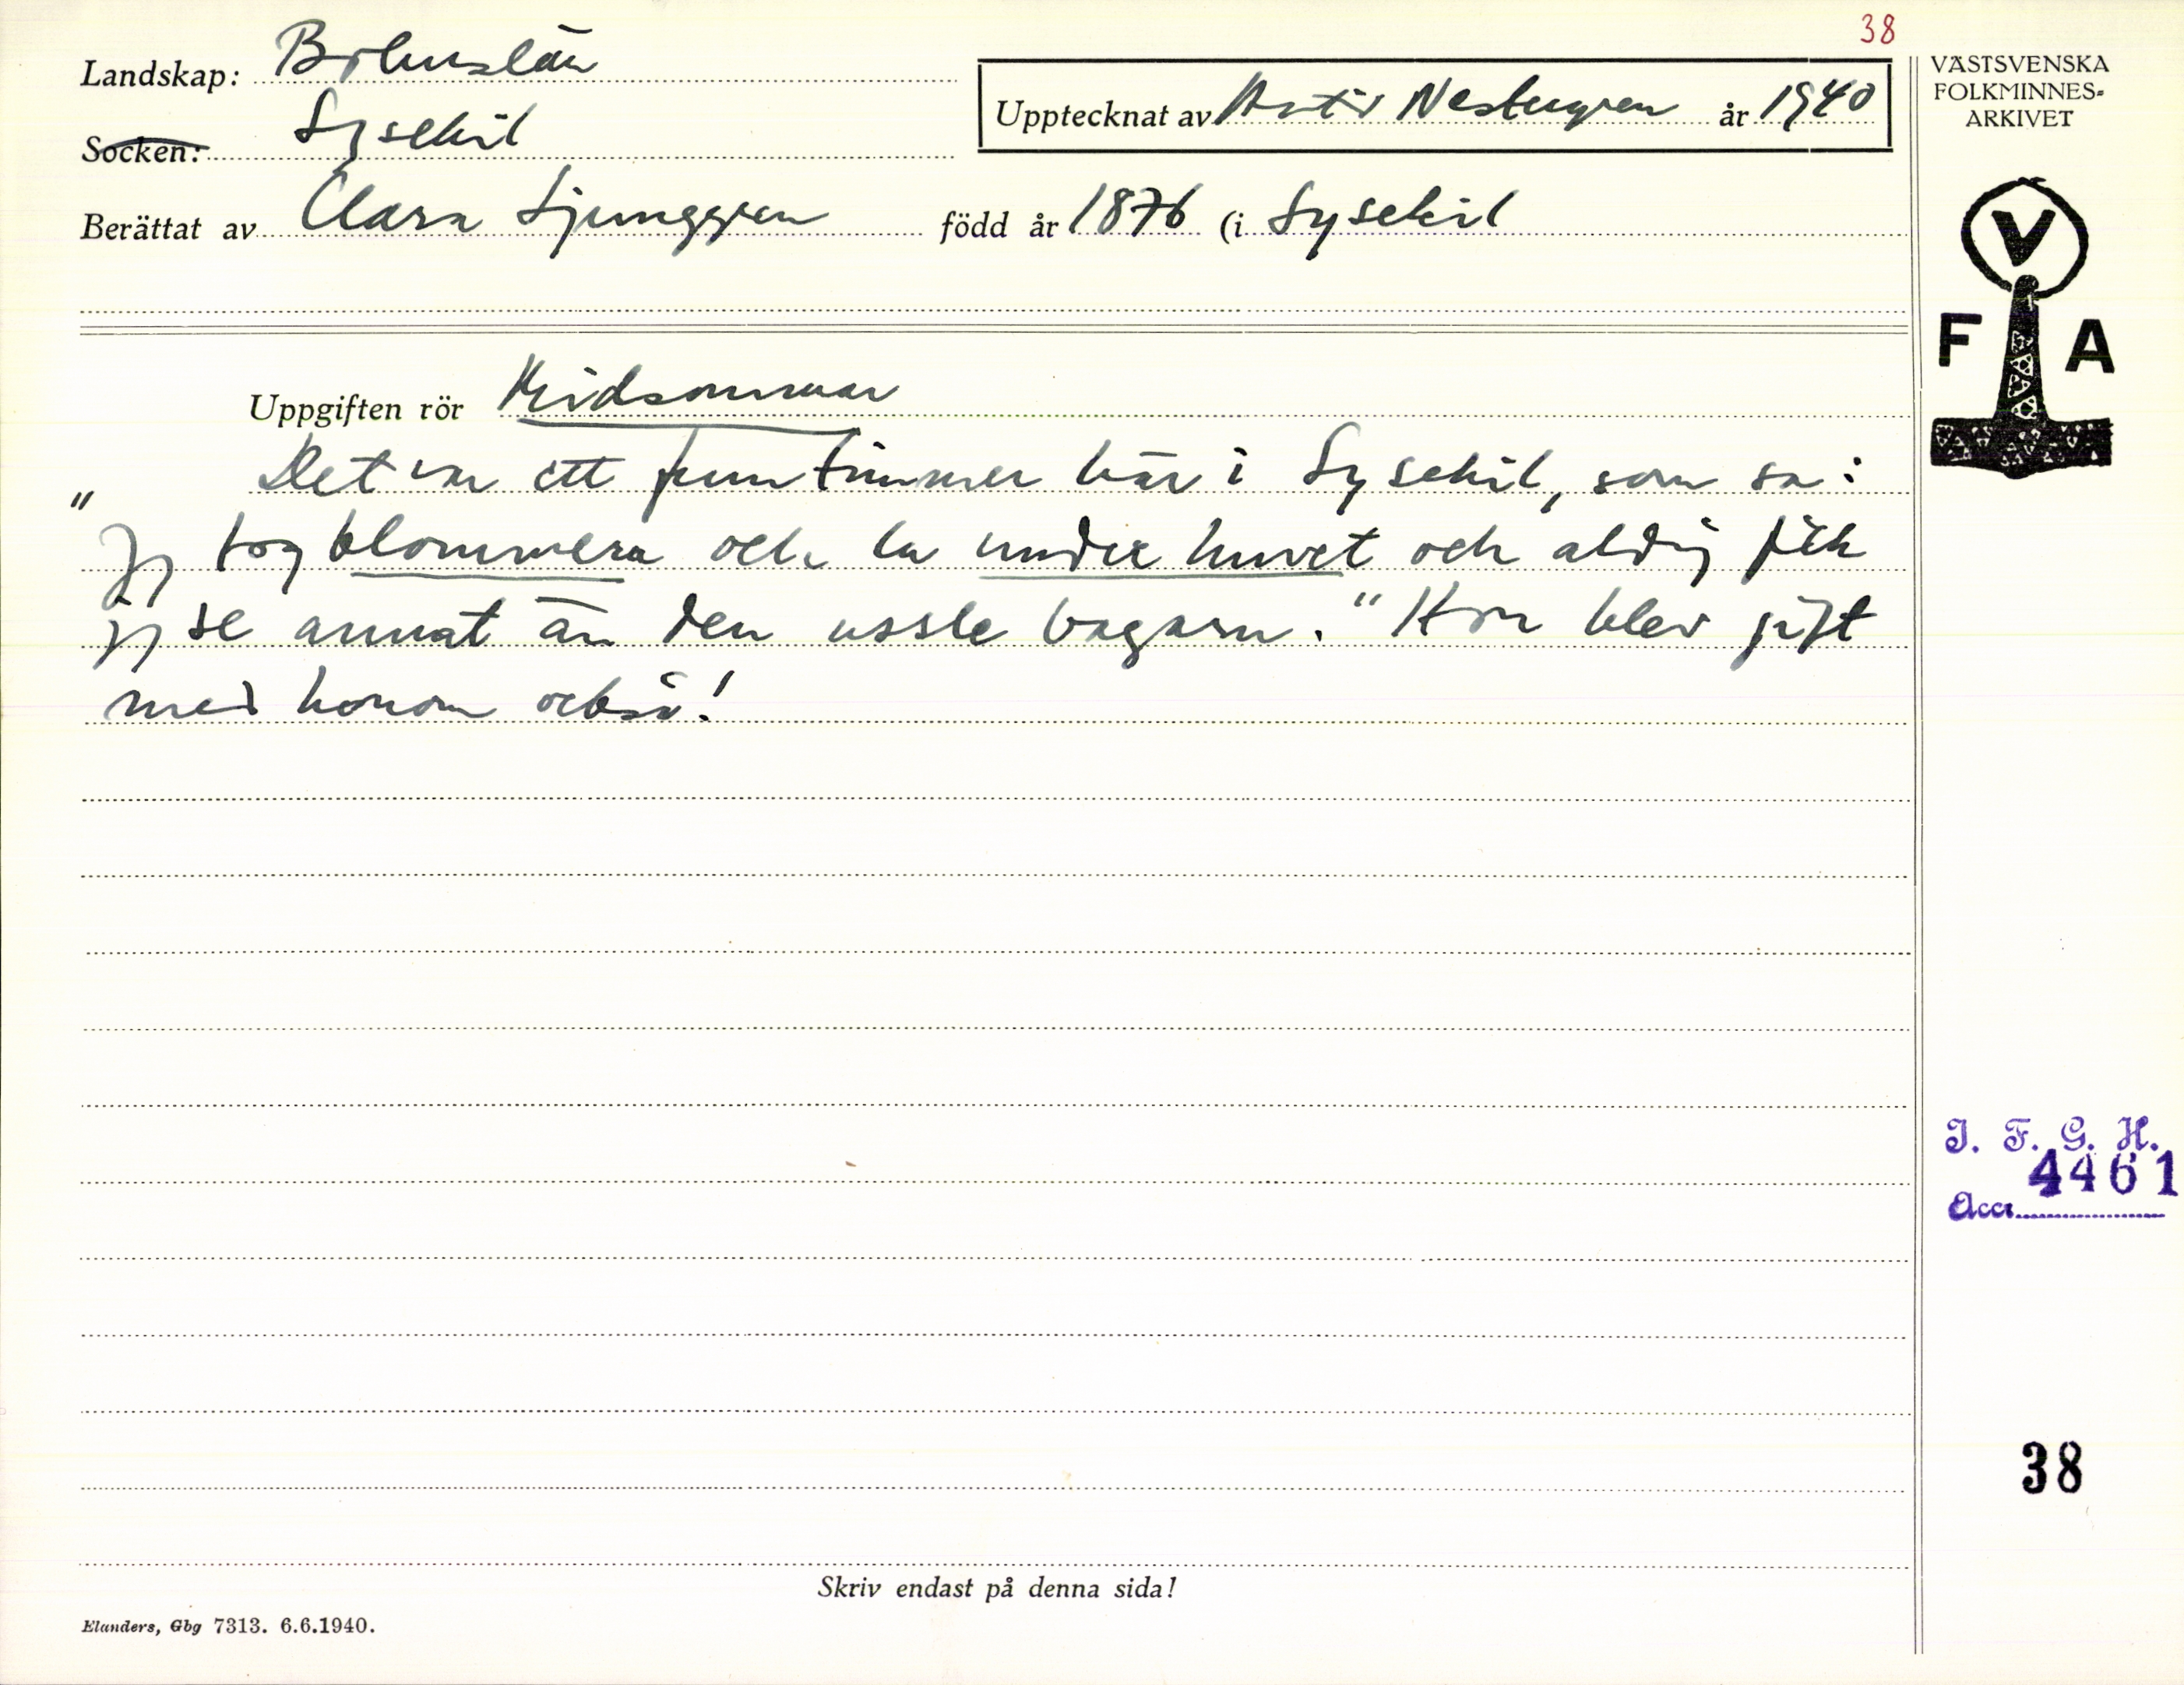 38
Landskap: Bohuslän
Socken: Lysekil
Upptecknat av Nestugren år 1940
Berättat av Clara Ljunggren född år 1876 (i Lysekil
VÄSTSVENSKA
FOLKMINNES-
ARKIVET
V
F A
Uppgiften rör Midsommar
Det var ett fruntimmer här i Lysekil, som sa:
"Jg tog blommera och la under huvet och aldrig fick
jg se annat än den ussle bagarn." Hon blev gift
med honom också!
I. F. G. H.
4461
Acc.
38
Skriv endast på denna sida!
Elanders, Gbg 7313. 6.6.1940.